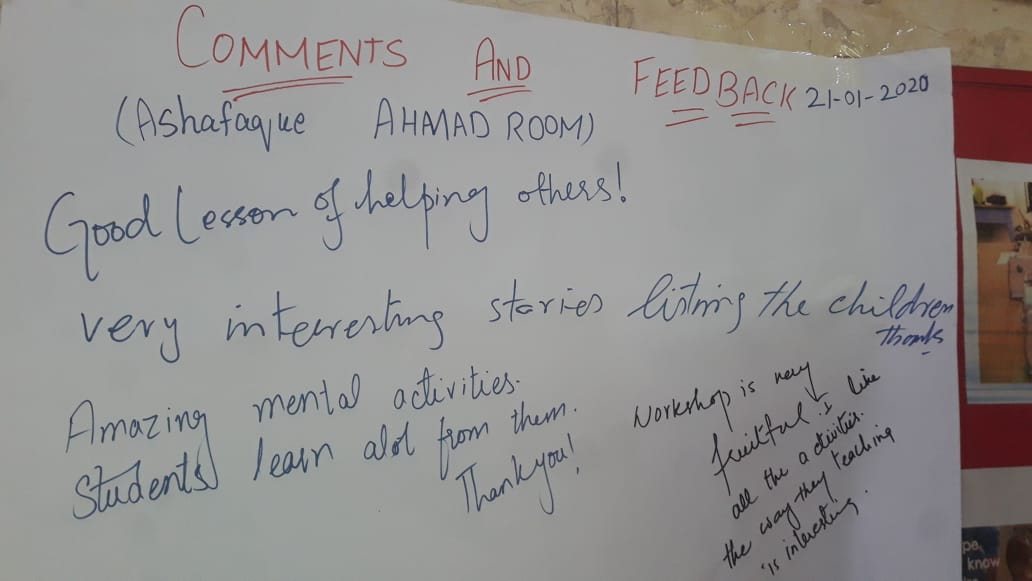 COMMENTS AND FEEDBACK 21-01-2020
(Ashafaque AHMAD ROOM)
Good Lesson of helping others!
very interesting stories listning the children
thanks
Amazing mental activities.
Students learn alot from them.
Thankyou!
Workshop is very
fruitful I like
all the activities.
the way they teaching
is interesting.
pa,
know